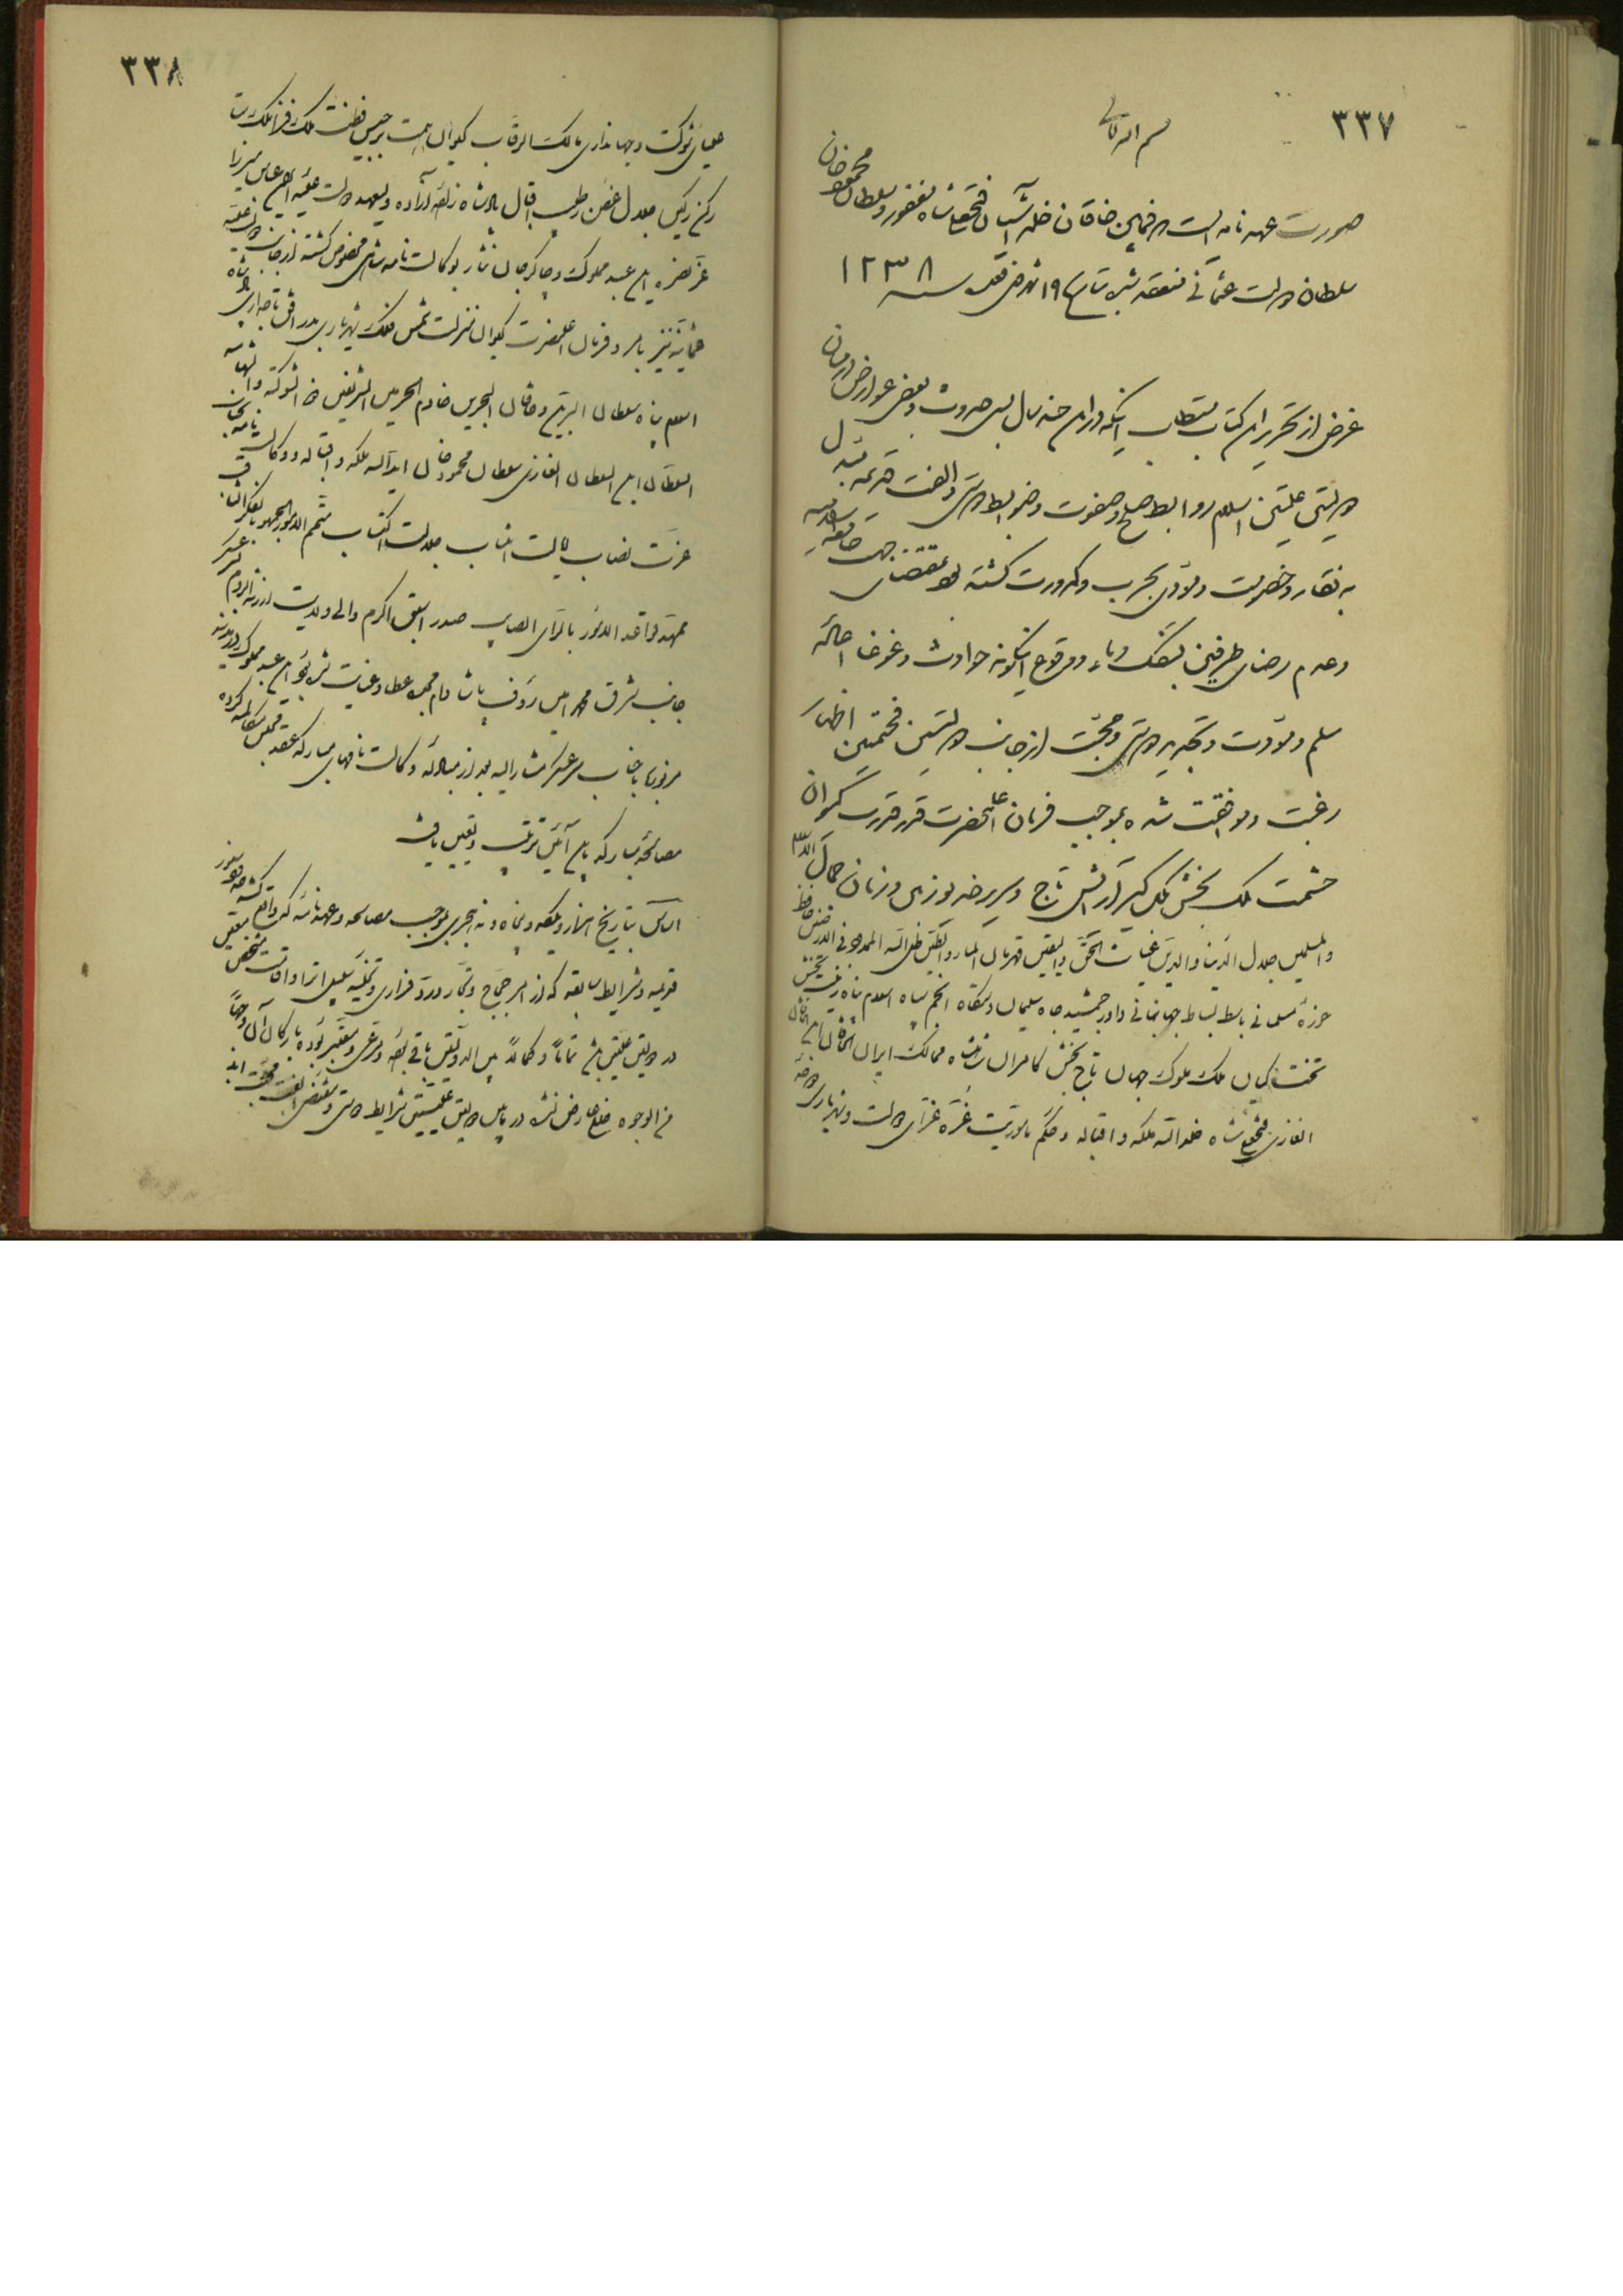 ۳۳۷
بسم الله تعالی
صورت عهدنامه است که فیمابین خاقان خلد آشیان فتحعلیشاه مغفور و سلطان محمود خان
سلطان دولت عثمانی منعقد شد بتاریخ ۱۹ شهر ذی قعده سنه ۱۲۳۸
غرض از تحریر این کتاب مستطاب اینکه در این چند سال بسبب حدوث بعضی عوارض در میان
دولتین علیتین اسلام روابط صلح و صفوت و ضوابط دوستی و الفت قدیمه مبدل
به نقار و خصومت و مؤدی بحرب و کدورت گشته بود بمقتضای جهت جامعه اسلامیه
و عدم رضای طرفین بسفک دماء و وقوع اینگونه حوادث و غوغا احاله
سلم و مودت و تجدید دوستی و محبت از جانب دولتین فخیمتین اظهار
رغبت و موافقت شده بموجب فرمان اعلیحضرت قدر قدرت کیوان
حشمت ملک بخش ملک گیر آرایش تاج و سریر خدیو زمین و زمان جمال الاسلام
والمسلمین جلال الدنیا والدین غیاث الحق والیقین قهرمان الماء والطین ظل الله الممدود فی الارضین حافظ
حوزه مسلمانی باسط بساط جهانبانی داور جمشید جاه سلیمان دستگاه انجم سپاه اسلام پناه زینت بخش
تخت کیان ملک ملوک جهان تاج بخش کامران شاهنشاه ممالک ایران الخاقان ابن الخاقان
الغازی فتحعلی شاه خلد الله ملکه و اقباله و حکم مأموریت غره غرای دولت و شهریاری درة
۳۳۸
علیای شوکت و جهانداری مالک الرقاب کیوان همت برجیس فطنت ملک زاده
رکن رکین جلال غصن رطیب اقبال پادشاه زاده آزاده ولیعهد دولت علیه ایران عباس میرزا
عز نصره این عبد مملوک و چاکر جان نثار بوکالت نامه مخصوص گشته از جانب دولت علیه
عثمانیه نیز بامر و فرمان اعلیحضرت کیوان منزلت شمس فلک شهریاری بدر افق تاجداری پادشاه
اسلام پناه سلطان البرین و خاقان البحرین خادم الحرمین الشریفین ذی الشوکة والشهامه
السلطان ابن السلطان الغازی سلطان محمود خان اید الله ملکه و اقباله و وکالت نامه بجانب
عزت نصاب ایالت انتساب جلالت اکتساب متمم امور الجمهور بالفکر الثاقب
ممهد قواعد الامور بالرأی الصایب صدر اسبق اکرم والی ولایت ارزنة الروم سرعسکر
جانب شرق محمد امین رؤف پاشا دام مجده عطا و عنایت شد این عبد مملوک
مزبور با جناب سرعسکر مشار الیه بعد از مبادله وکالت نامهای مبارکه عقد مجلس مکالمه کرده
مصالحه مبارکه باین آئین ترتیب و تعیین یافت
اساس بتاریخ هزار و یکصد و پنجاه و نه هجری بموجب مصالحه و عهدنامه که واقع گشته
قدیمه و شرایط سابقه که از امر حجاج و تجار و رد فراری و تخلیه سبیل اسرا و اقامت شخص معین
در دولتین علیتین تماماً و کمالاً بین الدولتین باقی بوده مرعی و معتبر بوده بارکان آن وجهاً
من الوجوه خلل عارض نشده در مابین دولتین علیتین شرایط دوستی و مقتضی الفت و محبت ابد